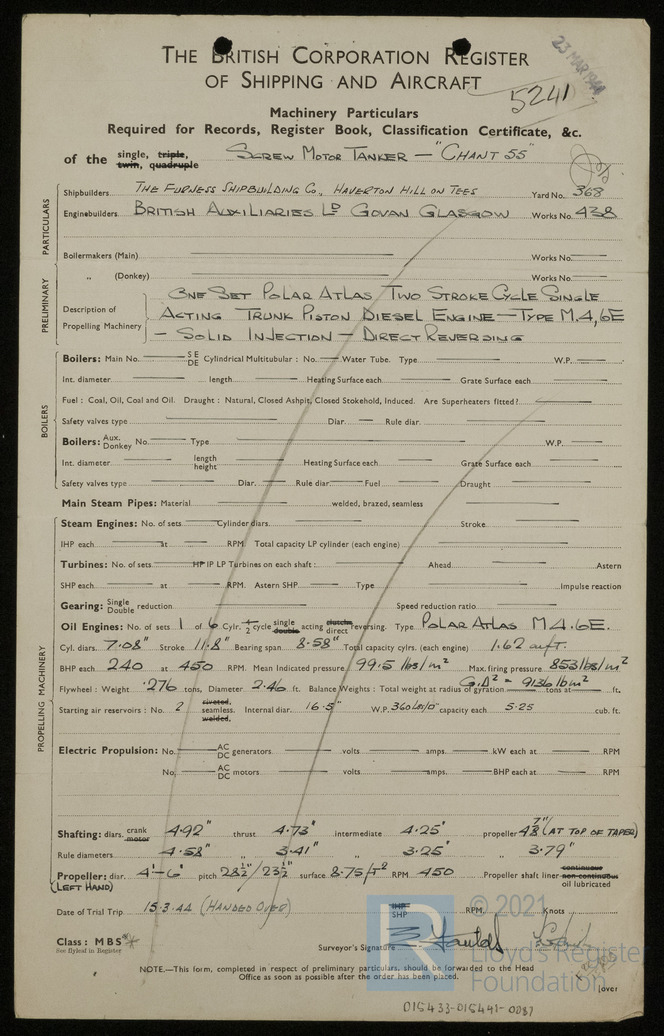 THE BRITISH CORPORATION REGISTER
OF SHIPPING AND AIRCRAFT
23 MAR 1944
5241
Machinery Particulars
Required for Records, Register Book, Classification Certificate, &c.
of the single, triple, twin, quadruple SCREW MOTOR TANKER — "CHANT 55"
PARTICULARS
Shipbuilders THE FURNESS SHIPBUILDING CO., HAVERTON HILL ON TEES Yard No. 368
Enginebuilders BRITISH AUXILIARIES LD GOVAN GLASGOW Works No. 438
Boilermakers (Main) Works No.
„ (Donkey) Works No.
PRELIMINARY
Description of Propelling Machinery
ONE SET POLAR ATLAS TWO STROKE CYCLE SINGLE
ACTING TRUNK PISTON DIESEL ENGINE — TYPE M.4,6E
— SOLID INJECTION — DIRECT REVERSING
BOILERS
Boilers: Main No. SE DE Cylindrical Multitubular: No. Water Tube. Type W.P.
Int. diameter length Heating Surface each Grate Surface each
Fuel: Coal, Oil, Coal and Oil. Draught: Natural, Closed Ashpit, Closed Stokehold, Induced. Are Superheaters fitted?
Safety valves type Diar. Rule diar.
Boilers: Aux. Donkey No. Type W.P.
Int. diameter length height Heating Surface each Grate Surface each
Safety valves type Diar. Rule diar. Fuel Draught
Main Steam Pipes: Material welded, brazed, seamless
PROPELLING MACHINERY
Steam Engines: No. of sets Cylinder diars. Stroke
IHP each at RPM. Total capacity LP cylinder (each engine)
Turbines: No. of sets HP IP LP Turbines on each shaft: Ahead Astern
SHP each at RPM. Astern SHP Type Impulse reaction
Gearing: Single Double reduction Speed reduction ratio
Oil Engines: No. of sets 1 of 6 Cylr. 4 2 cycle single double acting clutch direct reversing. Type POLAR ATLAS M4.6E.
Cyl. diars. 7.08" Stroke 11.8" Bearing span 8.58" Total capacity cylrs. (each engine) 1.62 cu.FT.
BHP each 240 at 450 RPM. Mean Indicated pressure 99.5 lbs/m² Max. firing pressure 853 lbs/m²
Flywheel: Weight .276 tons, Diameter 2.46 ft. Balance Weights: Total weight at radius of gyration tons at ft.
G.D² = 9136 lb m²
Starting air reservoirs: No. 2 riveted, seamless. welded. Internal diar. 16.5" W.P. 360 lb/□" capacity each 5.25 cub. ft.
Electric Propulsion: No. AC DC generators volts amps. kW each at RPM
No. AC DC motors volts amps. BHP each at RPM
Shafting: diars. crank motor 4.92" thrust 4.73" intermediate 4.25" propeller 4 7/8" (AT TOP OF TAPER)
Rule diameters 4.58" „ 3.41" „ 3.25" „ 3.79"
Propeller: diar. 4'-6" pitch 28½"/23½" surface 8.75/FT² RPM 450 Propeller shaft liner continuous non-continuous oil lubricated
(LEFT HAND)
Date of Trial Trip 15.3.44 (HANDED OVER) IHP SHP RPM. Knots
Class: MBS*
See Byelaw in Register
Surveyor's Signature
NOTE.—This form, completed in respect of preliminary particulars, should be forwarded to the Head
Office as soon as possible after the order has been placed.
[over
© 2021
Lloyd's Register
Foundation
015433-015441-0087